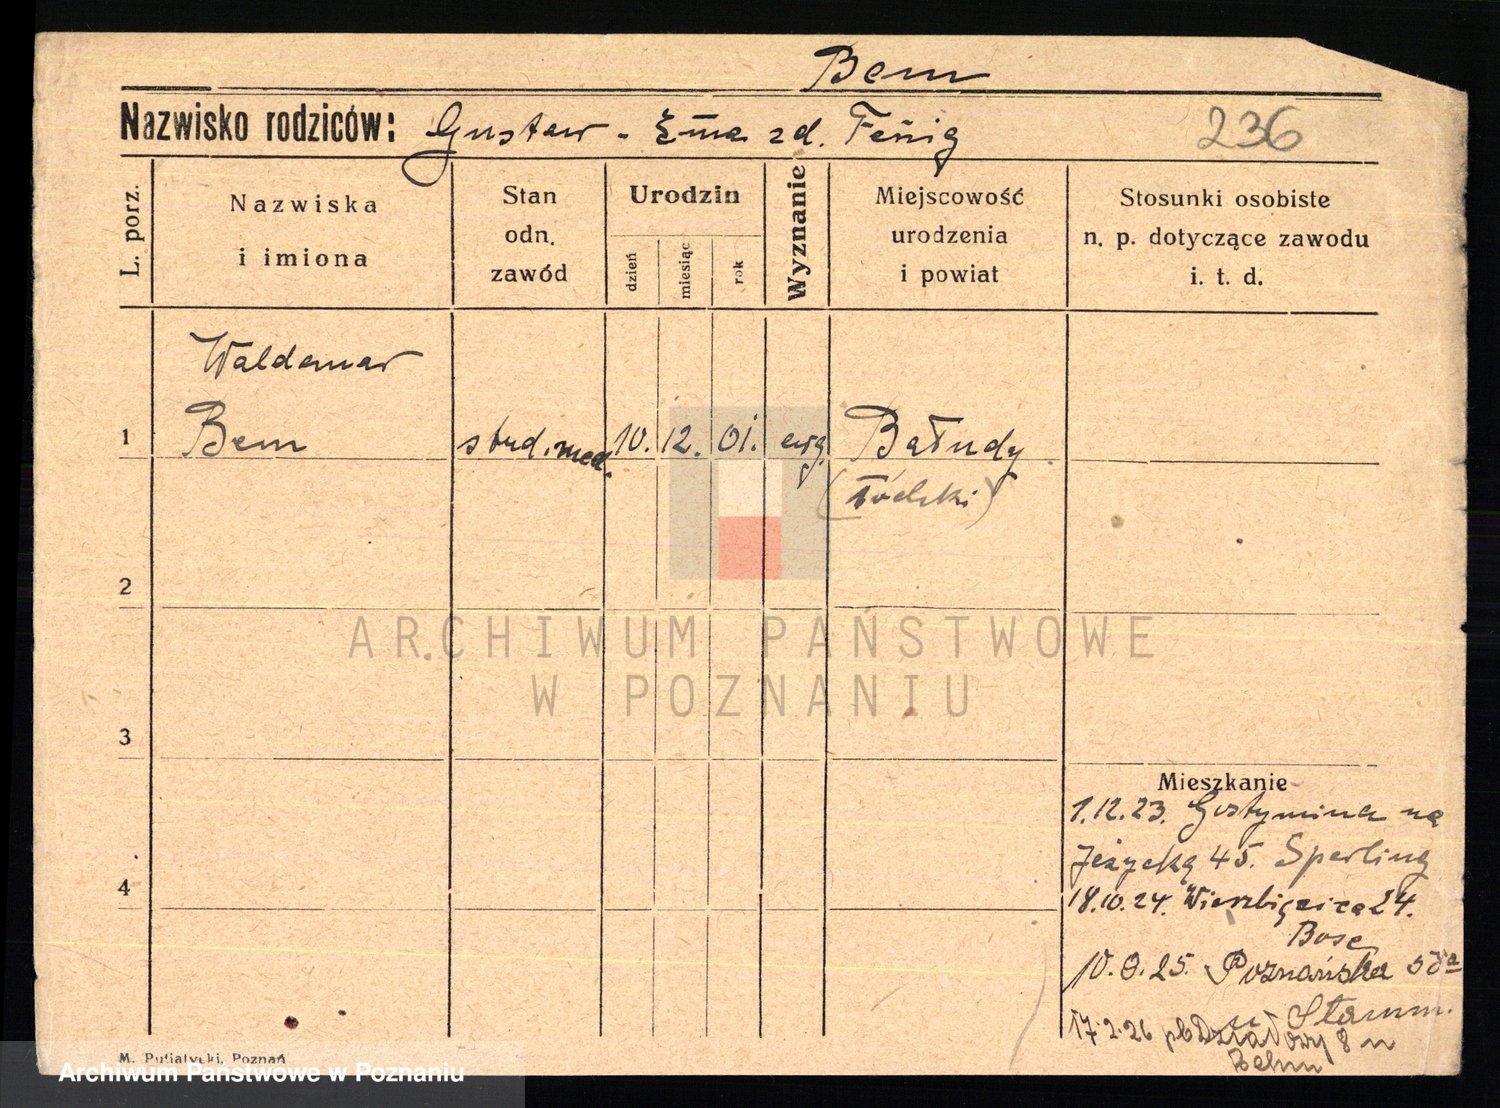 Bem
Nazwisko rodziców: Gustaw - Ema zd. Fenig 236
L. porz.
Nazwiska i imiona
Stan odn. zawód
Urodzin
dzień
miesiąc
rok
Wyznanie
Miejscowość urodzenia i powiat
Stosunki osobiste n. p. dotyczące zawodu i. t. d.
Waldemar
1 Bem stud. med. 10. 12. 01. ewg. Bałudy
2
3
4
ARCHIWUM PAŃSTWOWE
W POZNANIU
Mieszkanie
1.12.23. Gostynina na
Jeżycką 45. Sperling
18.10.24. Wierzbięcice 24.
Bose
10. 25. Poznańska
u Stamm.
17.2.26 pl Działowy 8 u
Behm
M. Putiatycki, Poznań
Archiwum Państwowe w Poznaniu